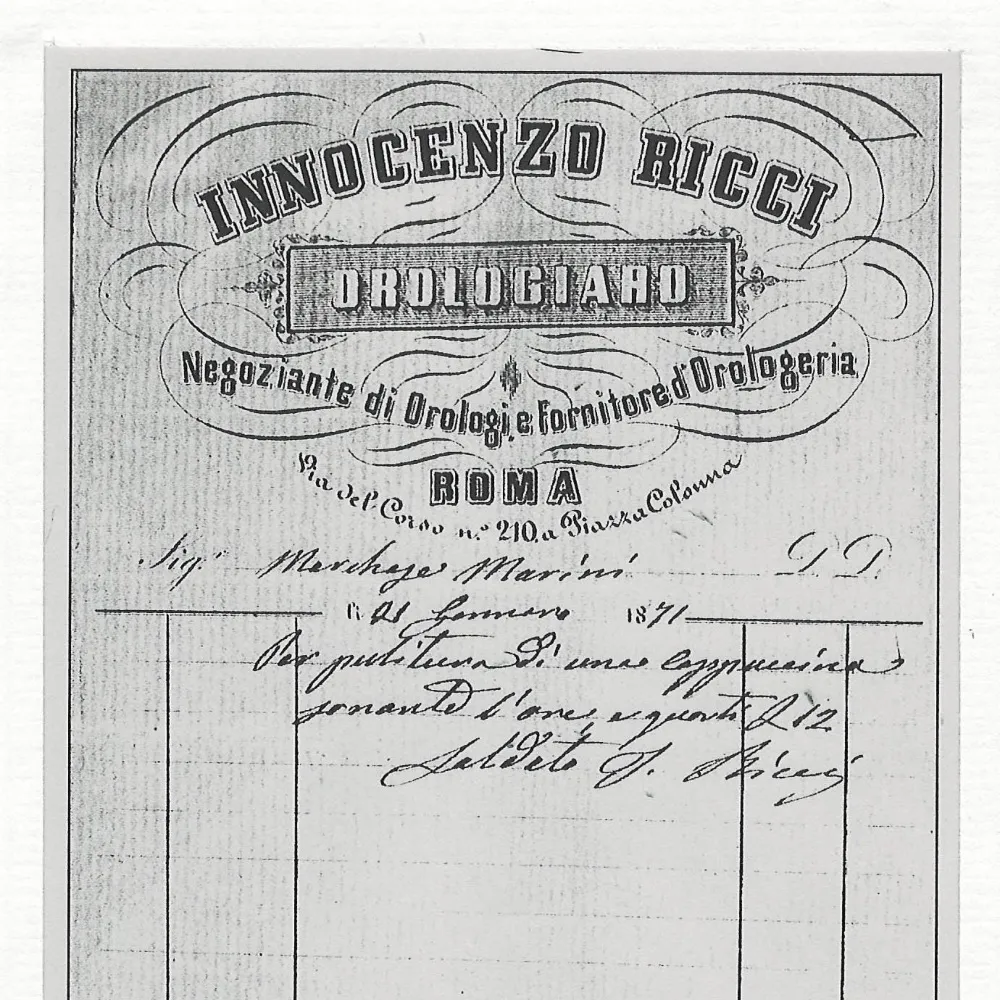 INNOCENZO RICCI
OROLOGIARO
Negoziante di Orologi, e Fornitore d'Orologeria
ROMA
Via del Corso n.º 210, a Piazza Colonna
Sig.r Marchese Marini D. D.
li 21 Gennaro 1871
Per pulitura di una cappuccina
sonante l'ore, e quarti L 12
Saldato I. Ricci